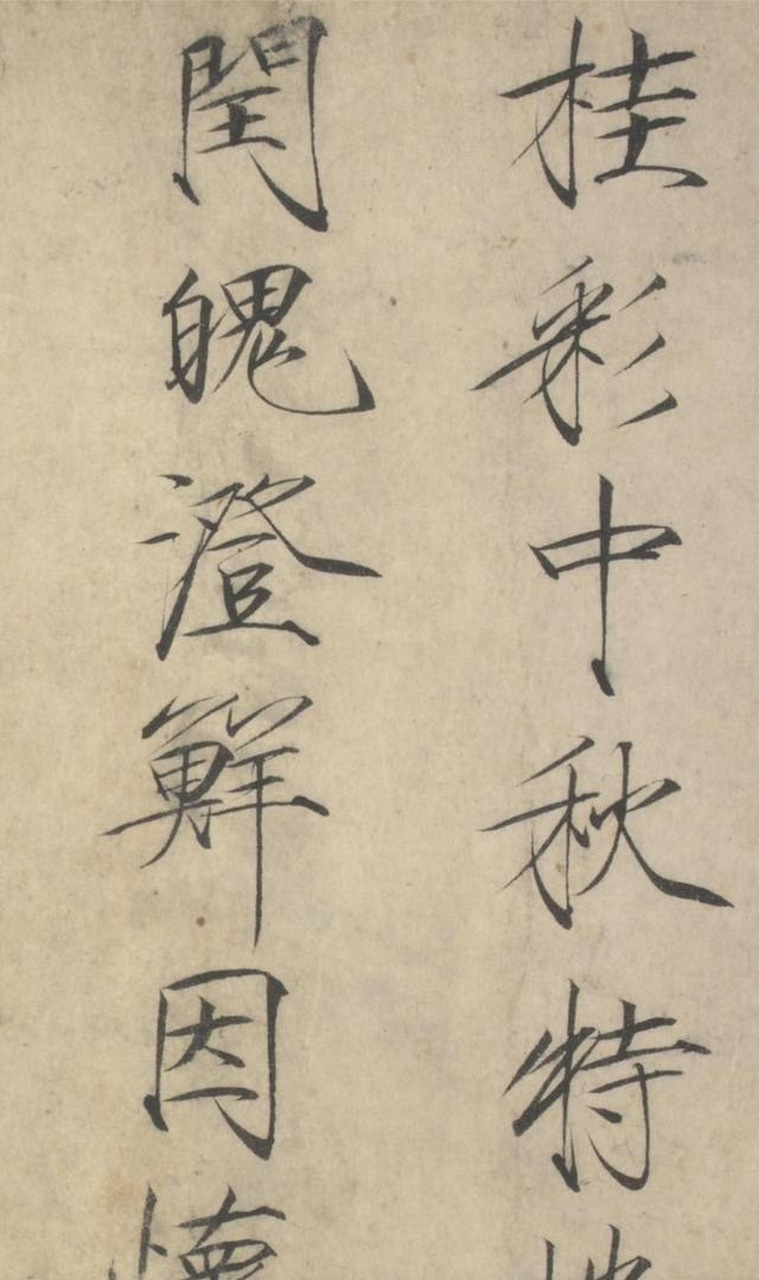 桂彩中秋特
閏魄澄鮮因